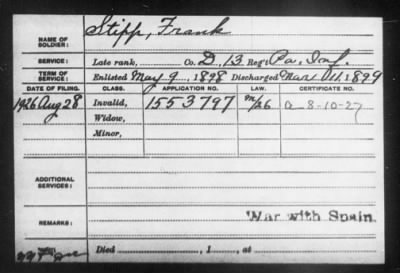 NAME OF SOLDIER: Stipp, Frank
SERVICE: Late rank, Co. D, 13 Reg't Pa. Inf.
TERM OF SERVICE: Enlisted May 9, 1898 Discharged Mar. 11, 1899
DATE OF FILING. CLASS. APPLICATION NO. LAW. CERTIFICATE NO.
1926 Aug 28 Invalid, 1553797 a-8-10-27
Widow,
Minor,
ADDITIONAL SERVICES:
REMARKS: War with Spain.
Died , 1 , at